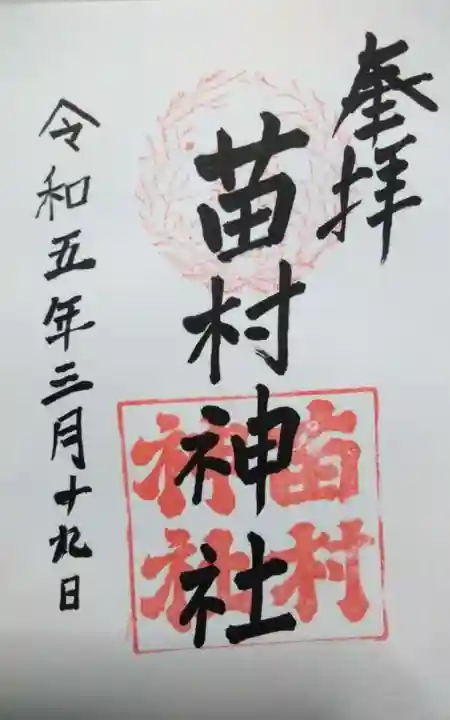 奉拝
苗村神社
苗村
神社
令和五年三月十九日